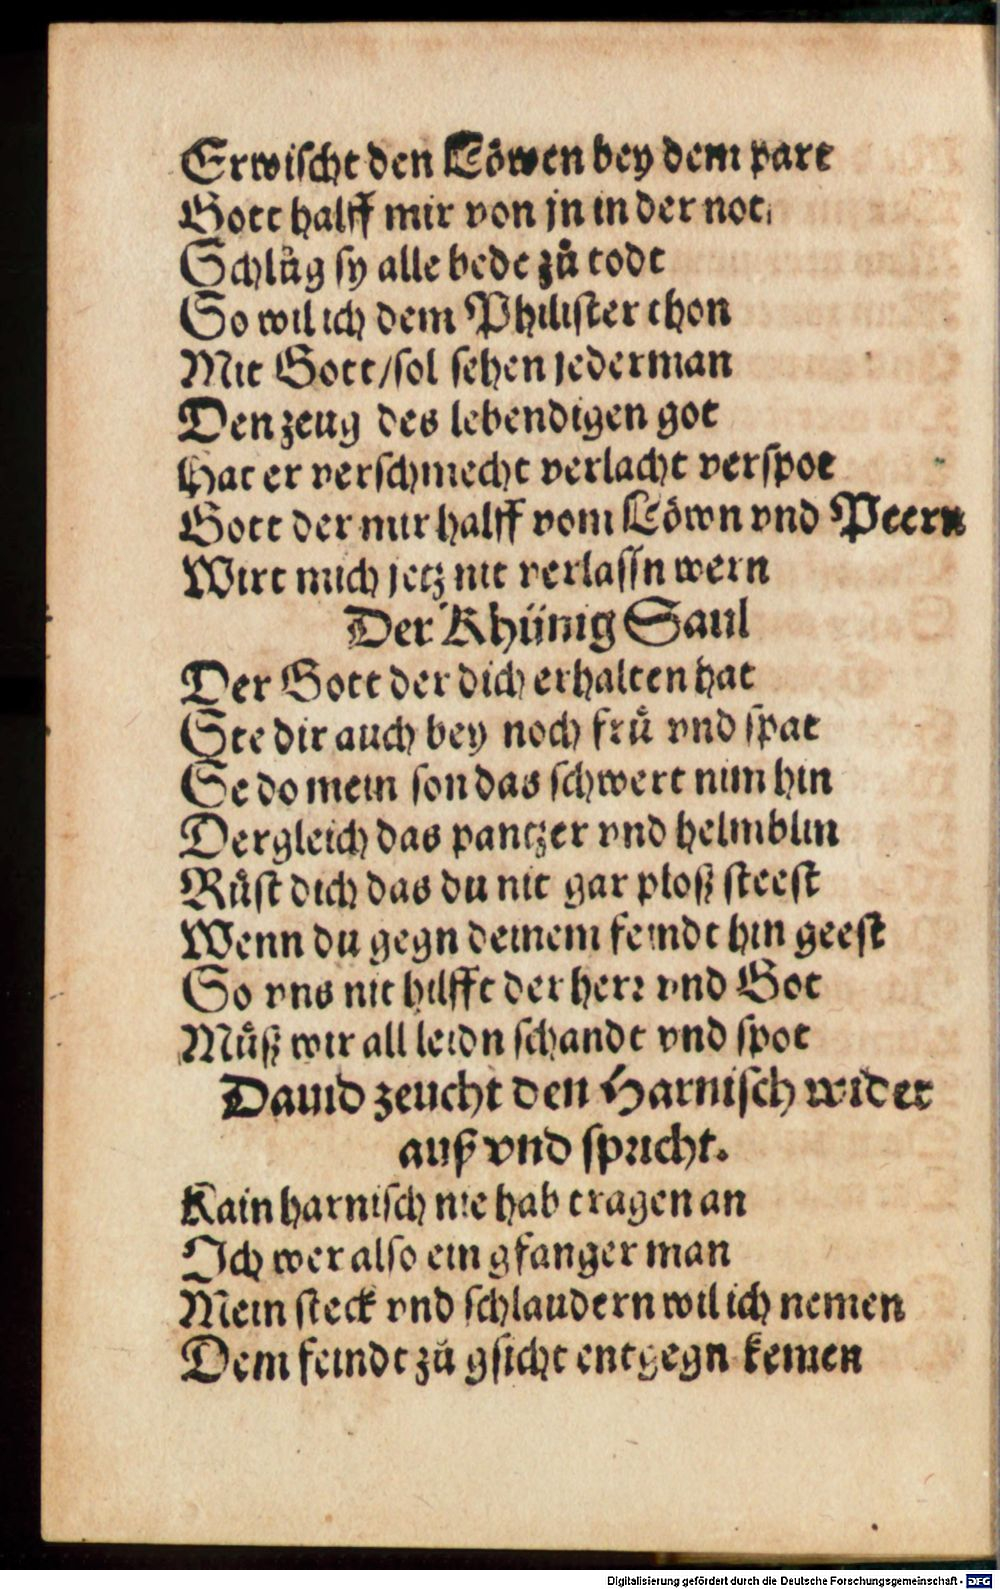 Erwischt den Löwen bey dem part
Gott halff mir von jn in der not.
Schlůg sy alle bede zů todt
So wil ich dem Philister thon
Mit Gott/sol sehen jederman
Den zeug des lebendigen got
Hat er verschmecht verlacht verspot
Gott der mir halff vom Löwn vnd Peern
Wirt mich jetz nit verlassn wern
Der Khünig Saul
Der Gott der dich erhalten hat
Ste dir auch bey noch frů vnd spat
Se do mein son das schwert nim hin
Dergleich das pantzer vnd helmblin
Růst dich das du nit gar ploß steest
Wenn du gegn deinem feindt hin geest
So vns nit hilfft der herr vnd Got
Můß wir all leidn schandt vnd spot
Dauid zeucht den Harnisch wider
auß vnd spricht.
Kain harnisch nie hab tragen an
Ich wer also ein gfanger man
Mein steck vnd schlaudern wil ich nemen
Dem feindt zů gsicht entgegn kemen
Digitalisierung gefördert durch die Deutsche Forschungsgemeinschaft - DFG